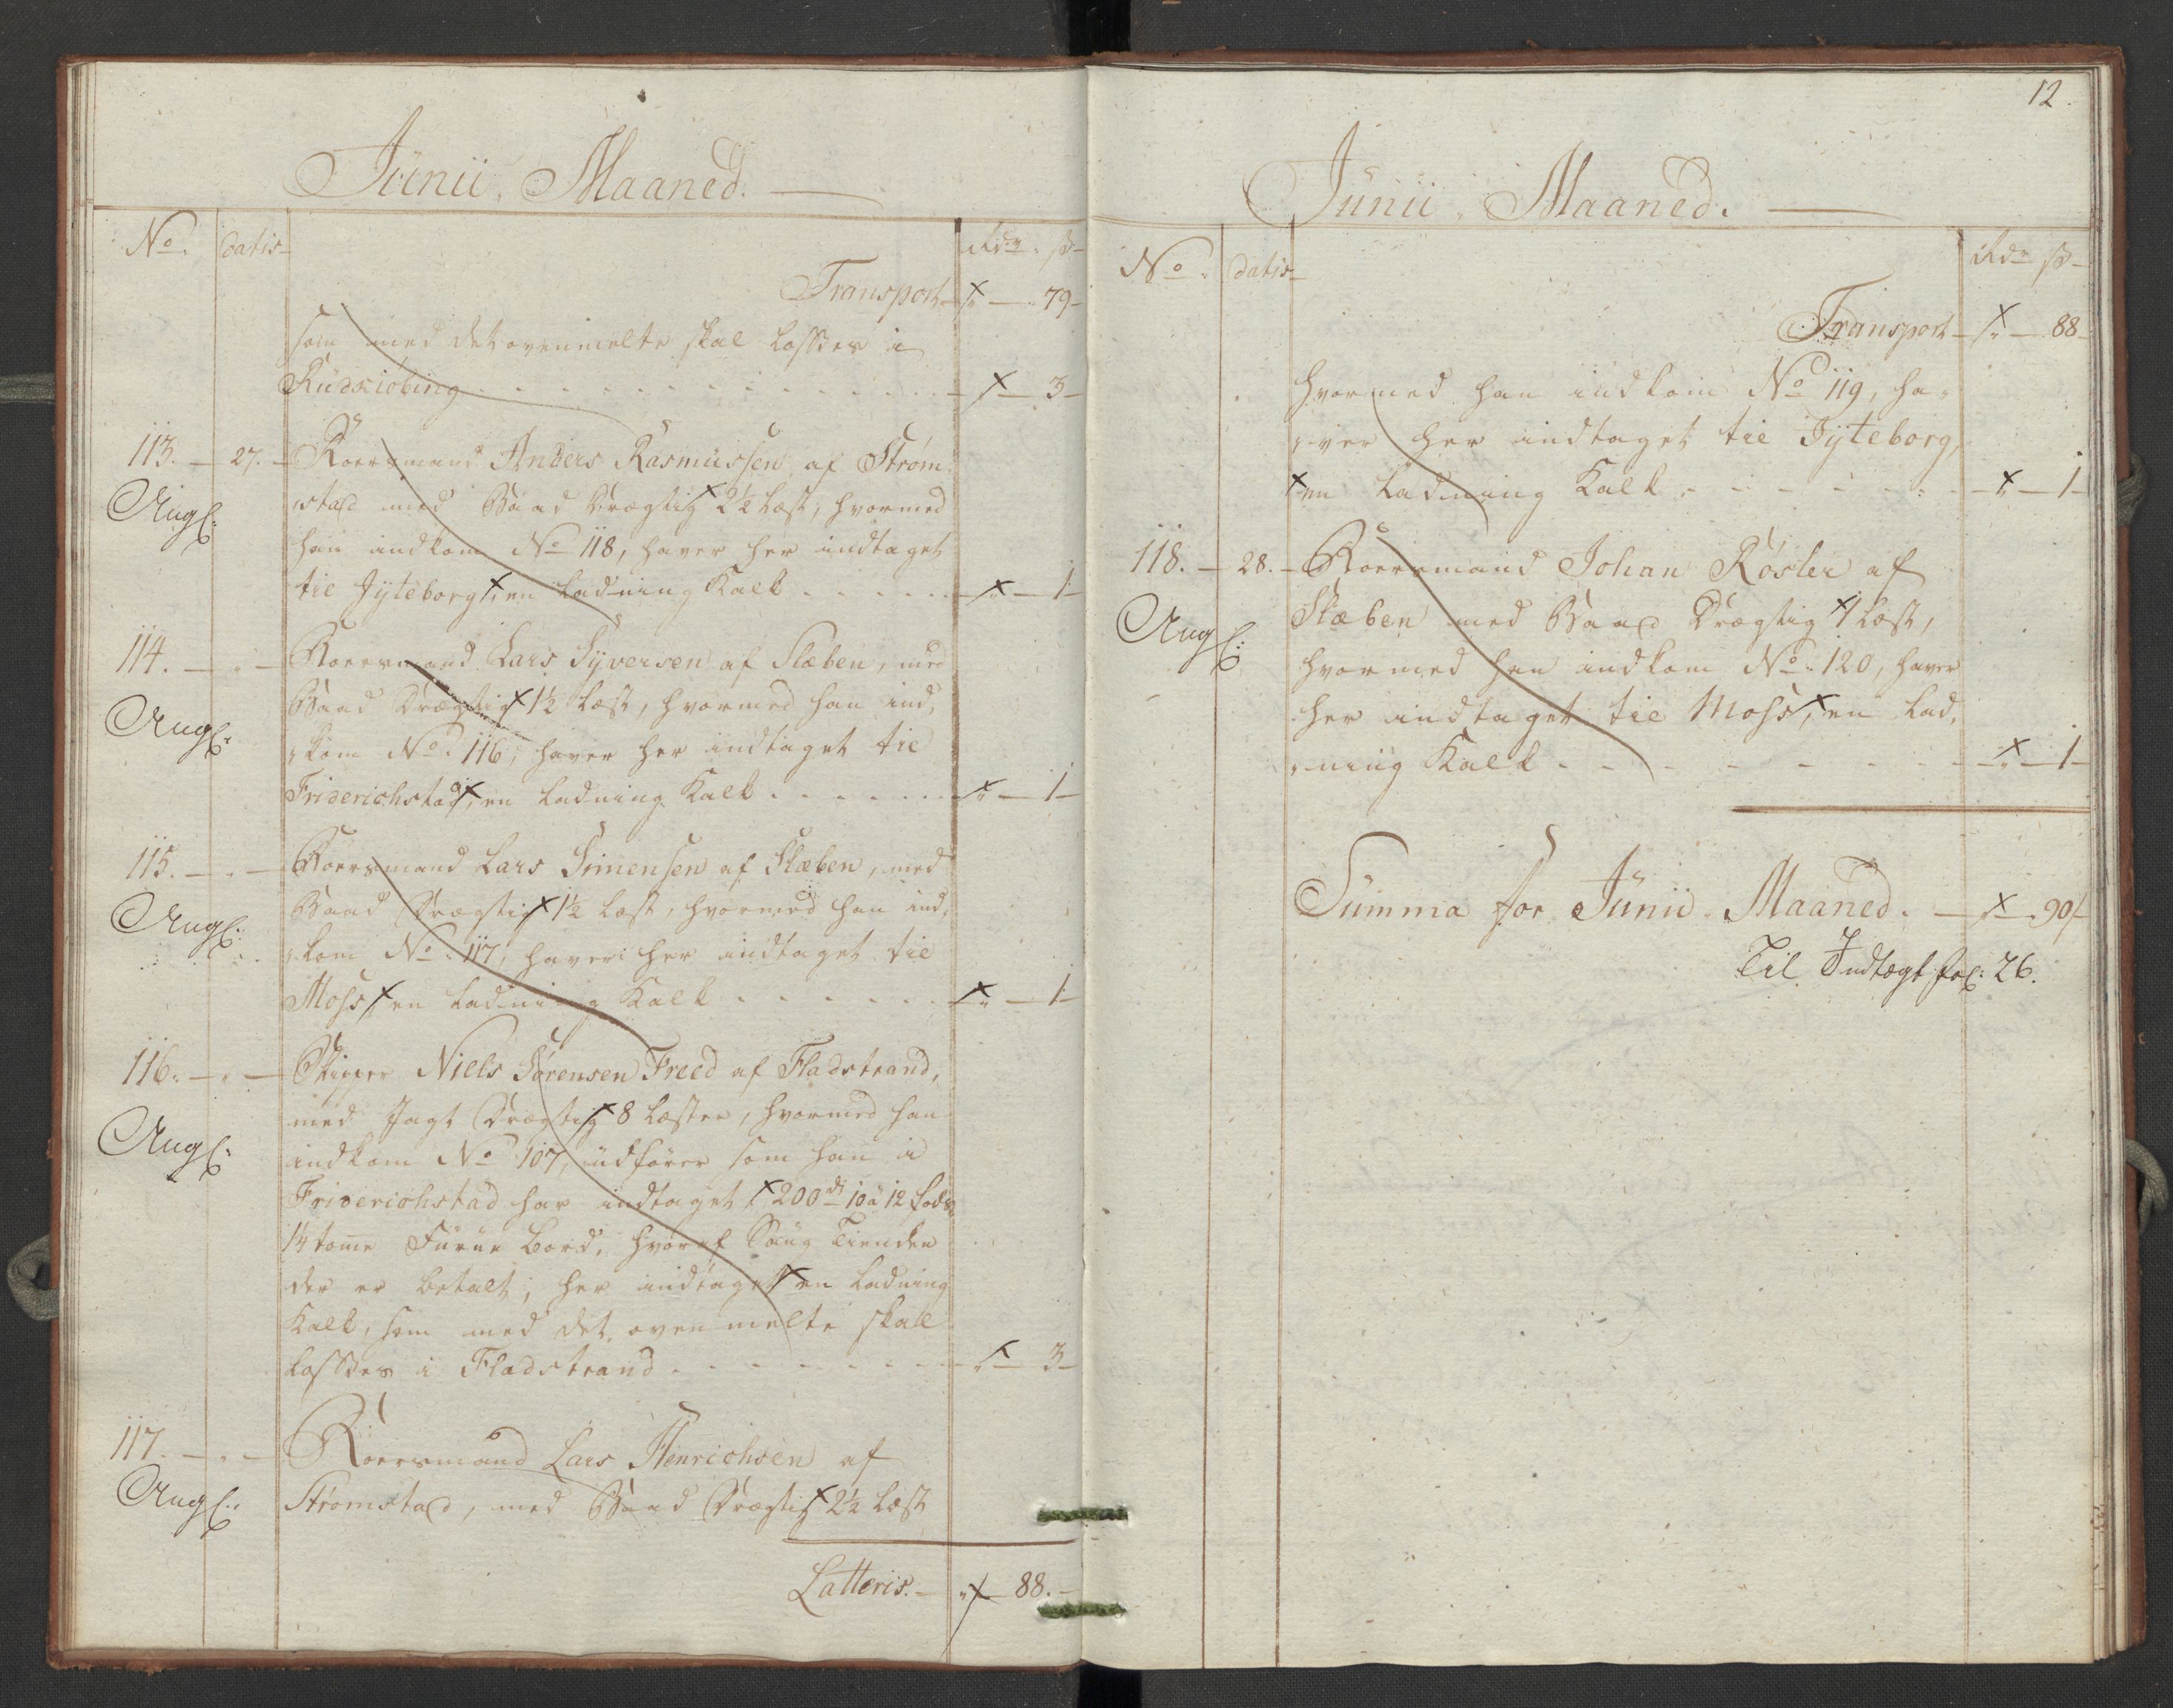 Junii Maaned.
No. datis Rdr. ß
Transport " 79
som med det ovenmelte skal lossses i
Rudkiöbing " 3
113. 27. Roersmand Anders Rasmussen af Strøm
Angl: stad med Baad drægtig 2½ Læst, hvormed
han indkom No 118, haver her indtaget
til Jÿteborg, en Ladning Kalk " 1
114. " Roersmand Lars Sÿversen af Slæben, med
Angl: Baad drægtig 1½ Læst, hvormed han ind,
kom No. 116, haver her indtaget til
Friderichstad, en Ladning Kalk " 1
115. " Roersmand Lars Simensen af Slæben, med
Angl: Baad drægtig 1½ Læst, hvormed han ind,
kom No. 117, haver her indtaget til
Moss, en Ladning Kalk " 1
116. " Skipper Niels Sørensen Freed af Fladstrand,
med Jagt drægtig 8 Læster, hvormed han
Angl: indkom No 107, udfører som han i
Friderichstad har indtaget, 200de 10 à 12 fods
1¼ tome Furue Bord, hvoraf Saug Tienden
der er betalt, her indtaget en Ladning
Kalk, som med det ovenmelte skal
losses i Fladstrand " 3
117. " Roersmand Lars Henrichsen af
Angl: Strømstad, med Baad drægtig 2½ Læst
Latteris. " 88.
12.
Junii Maaned.
No. datis Rdr ß
Transport " 88
hvormed han indkom No 119, ha,
ver her indtaget til Jÿteborg,
en Ladning Kalk " 1
118. 28. Roersmand Johan Røsler af
Angl: Slæben med Baad drægtig 1 Læst,
hvormed han indkom No. 120, haver
her indtaget til Moss, en Lad,
ning Kalk " 1
Summa for Junii Maaned. " 90
Til Indtægt fol: 26.